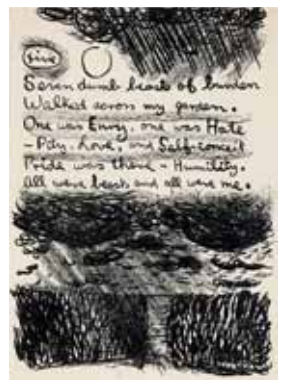 five
Seven dumb beasts of burden
Walked across my garden.
One was Envy, one was Hate
– Pity, Love, and Self-conceit
Pride was there – Humility.
All were beasts and all were me.